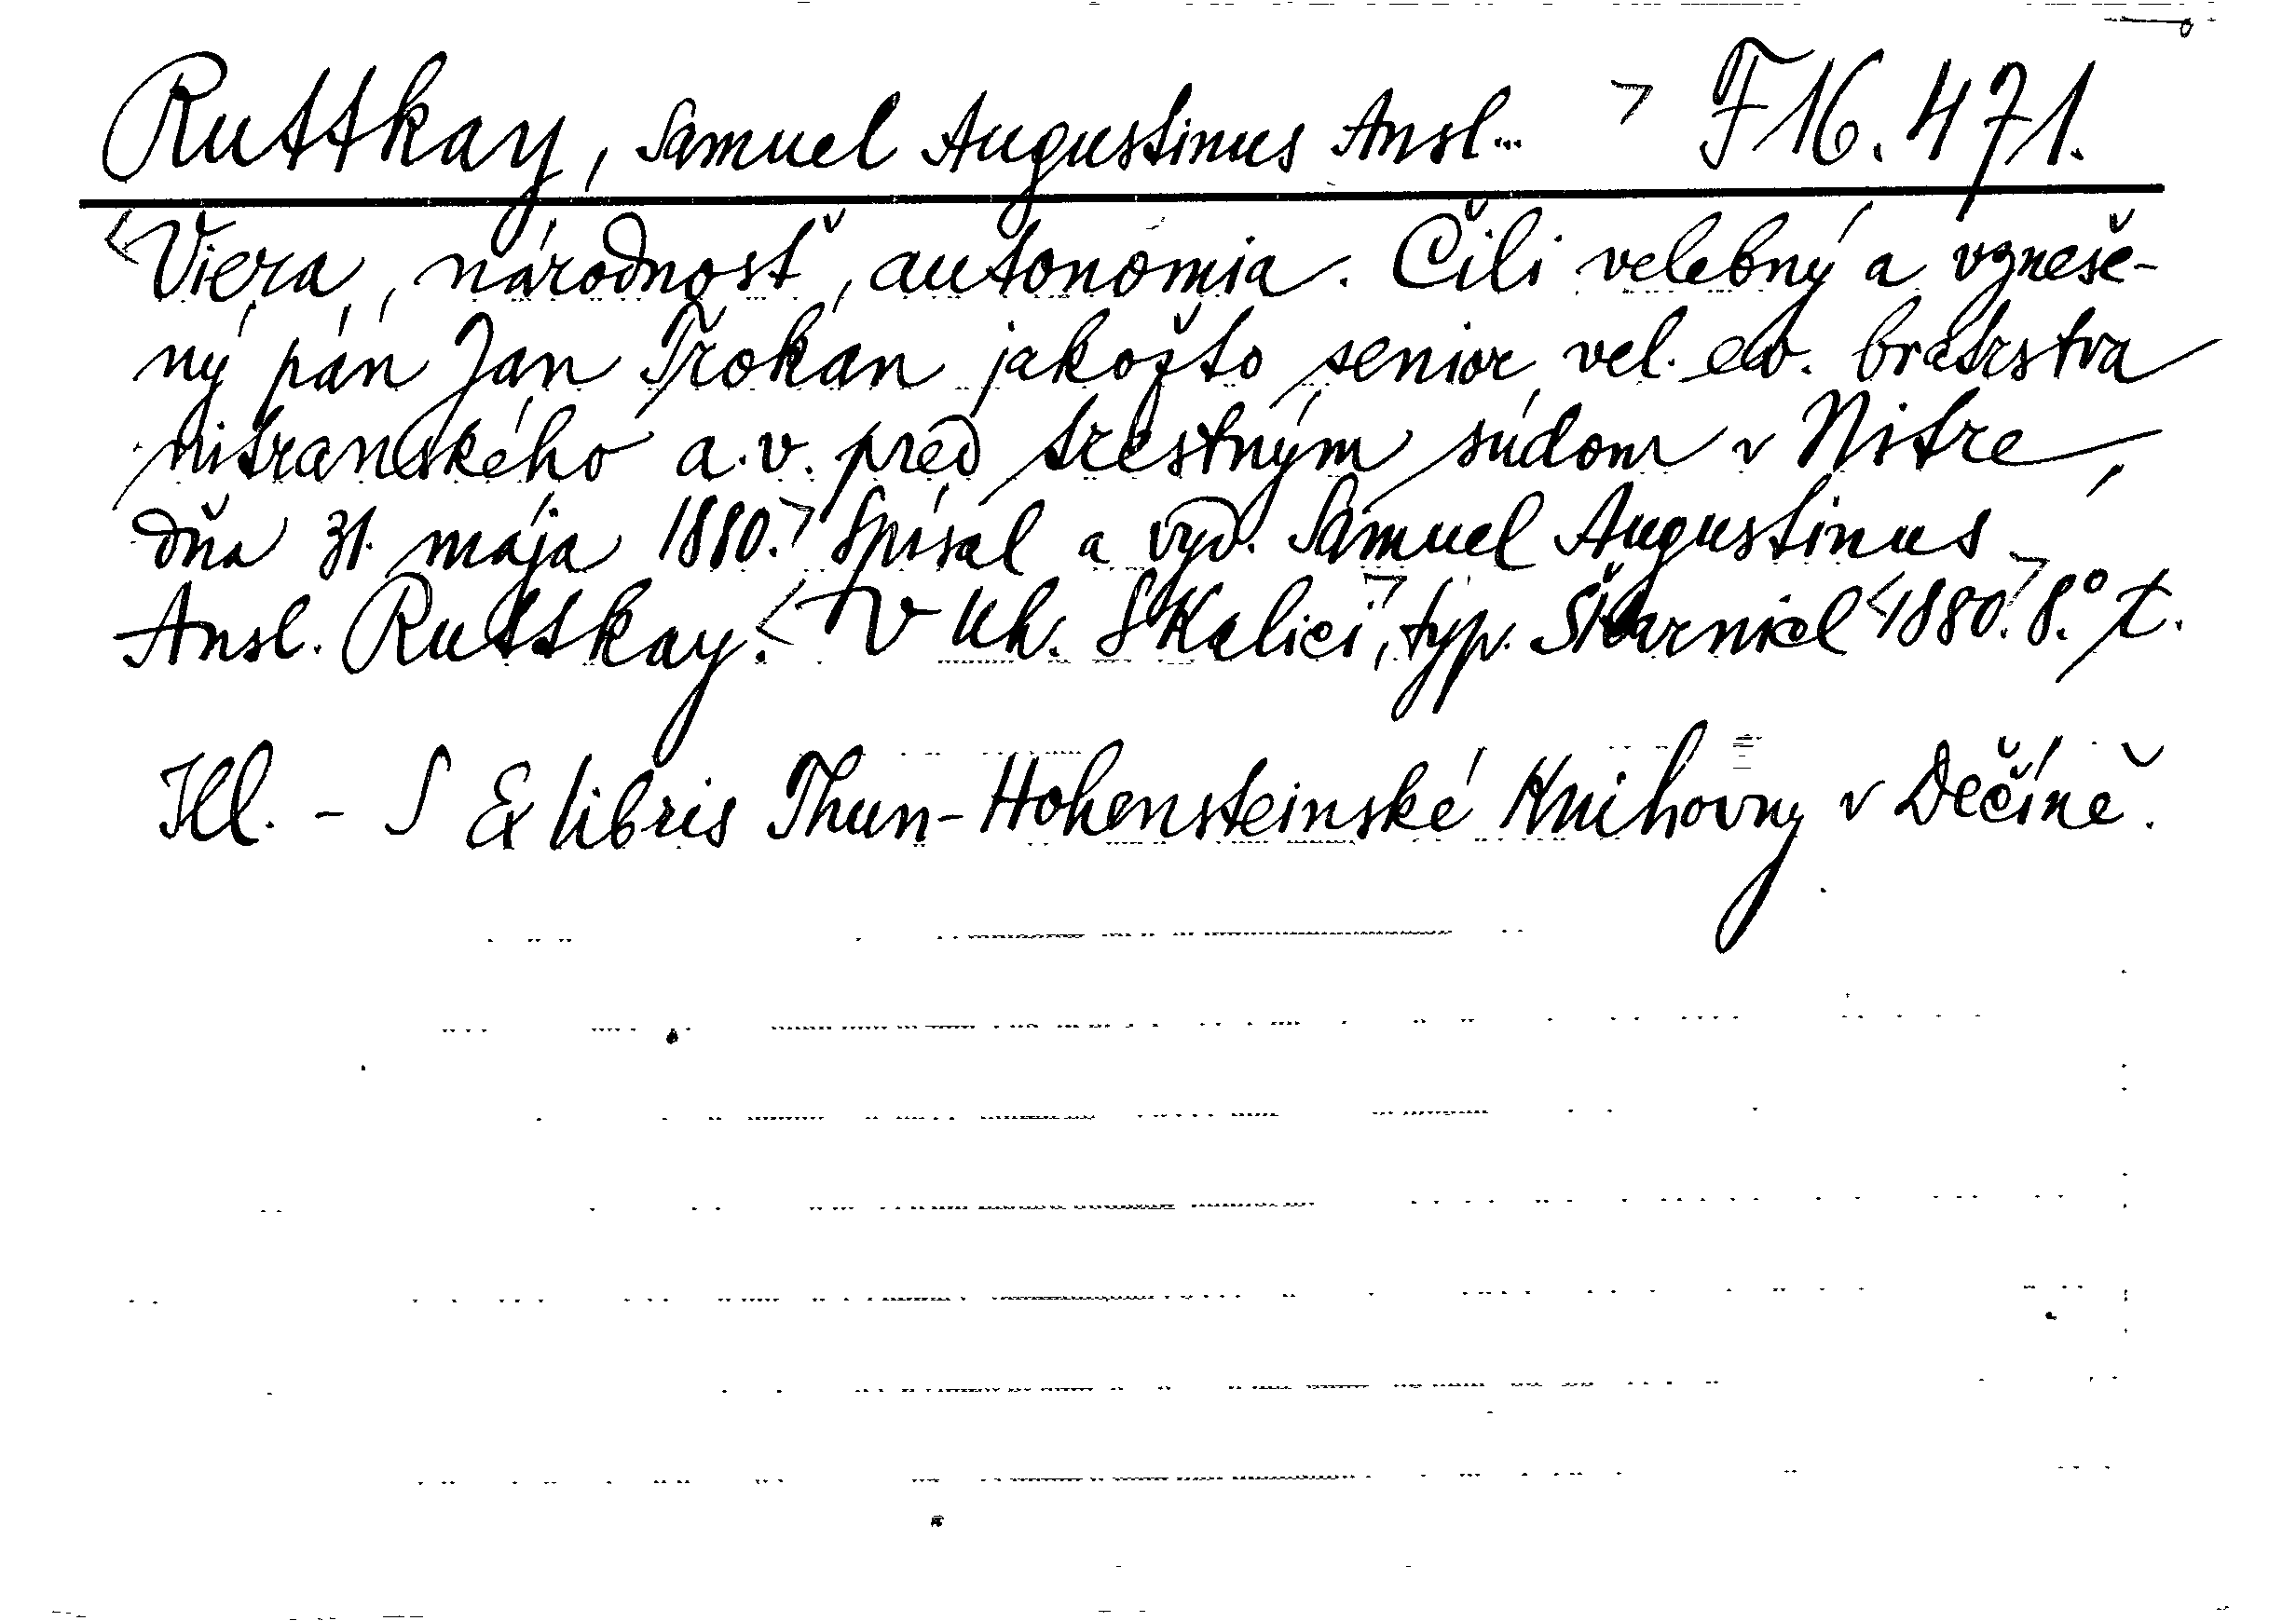 Ruttkay, Samuel Augustinus Ansl... > F 16.471.
<Viera, národnosť, autonómia. Čili velebný a vzneše-
ný pán Ján Trokan jakožto senior vel. ev. bratrstva
nitranského a.v. pred trestným súdom v Nitre,
dňa 31. mája 1880.> Spísal a vyd. Samuel Augustinus
Ansl. Ruttkay. <V Uh. Skalici>, typ. Škarnicl <1880.> 8.° t.
Ill. - S Ex libris Thun-Hohensteinské Knihovny v Děčíně.